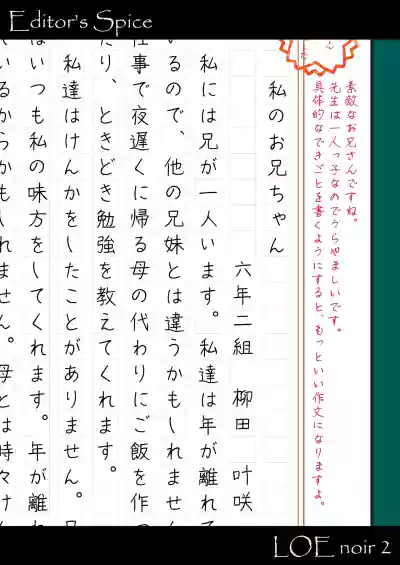 Editor's Spice
素敵なお兄さんですね。
先生は一人っ子なのでうらやましいです。
具体的なできごとを書くようにすると、もっといい作文になりますよ。
私のお兄ちゃん
六年二組 柳田 叶咲
私には兄が一人います。私達は年が離れて
いるので、他の兄妹とは違うかもしれません
仕事で夜遅くに帰る母の代わりにご飯を作っ
たり、ときどき勉強を教えてくれます。
私達はけんかをしたことがありません。兄
はいつも私の味方をしてくれます。年が離れ
いるからかもしれません。母とは時々けん
LOE noir 2